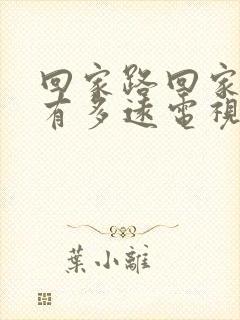 回家路回家
有多遠電視
葉小離